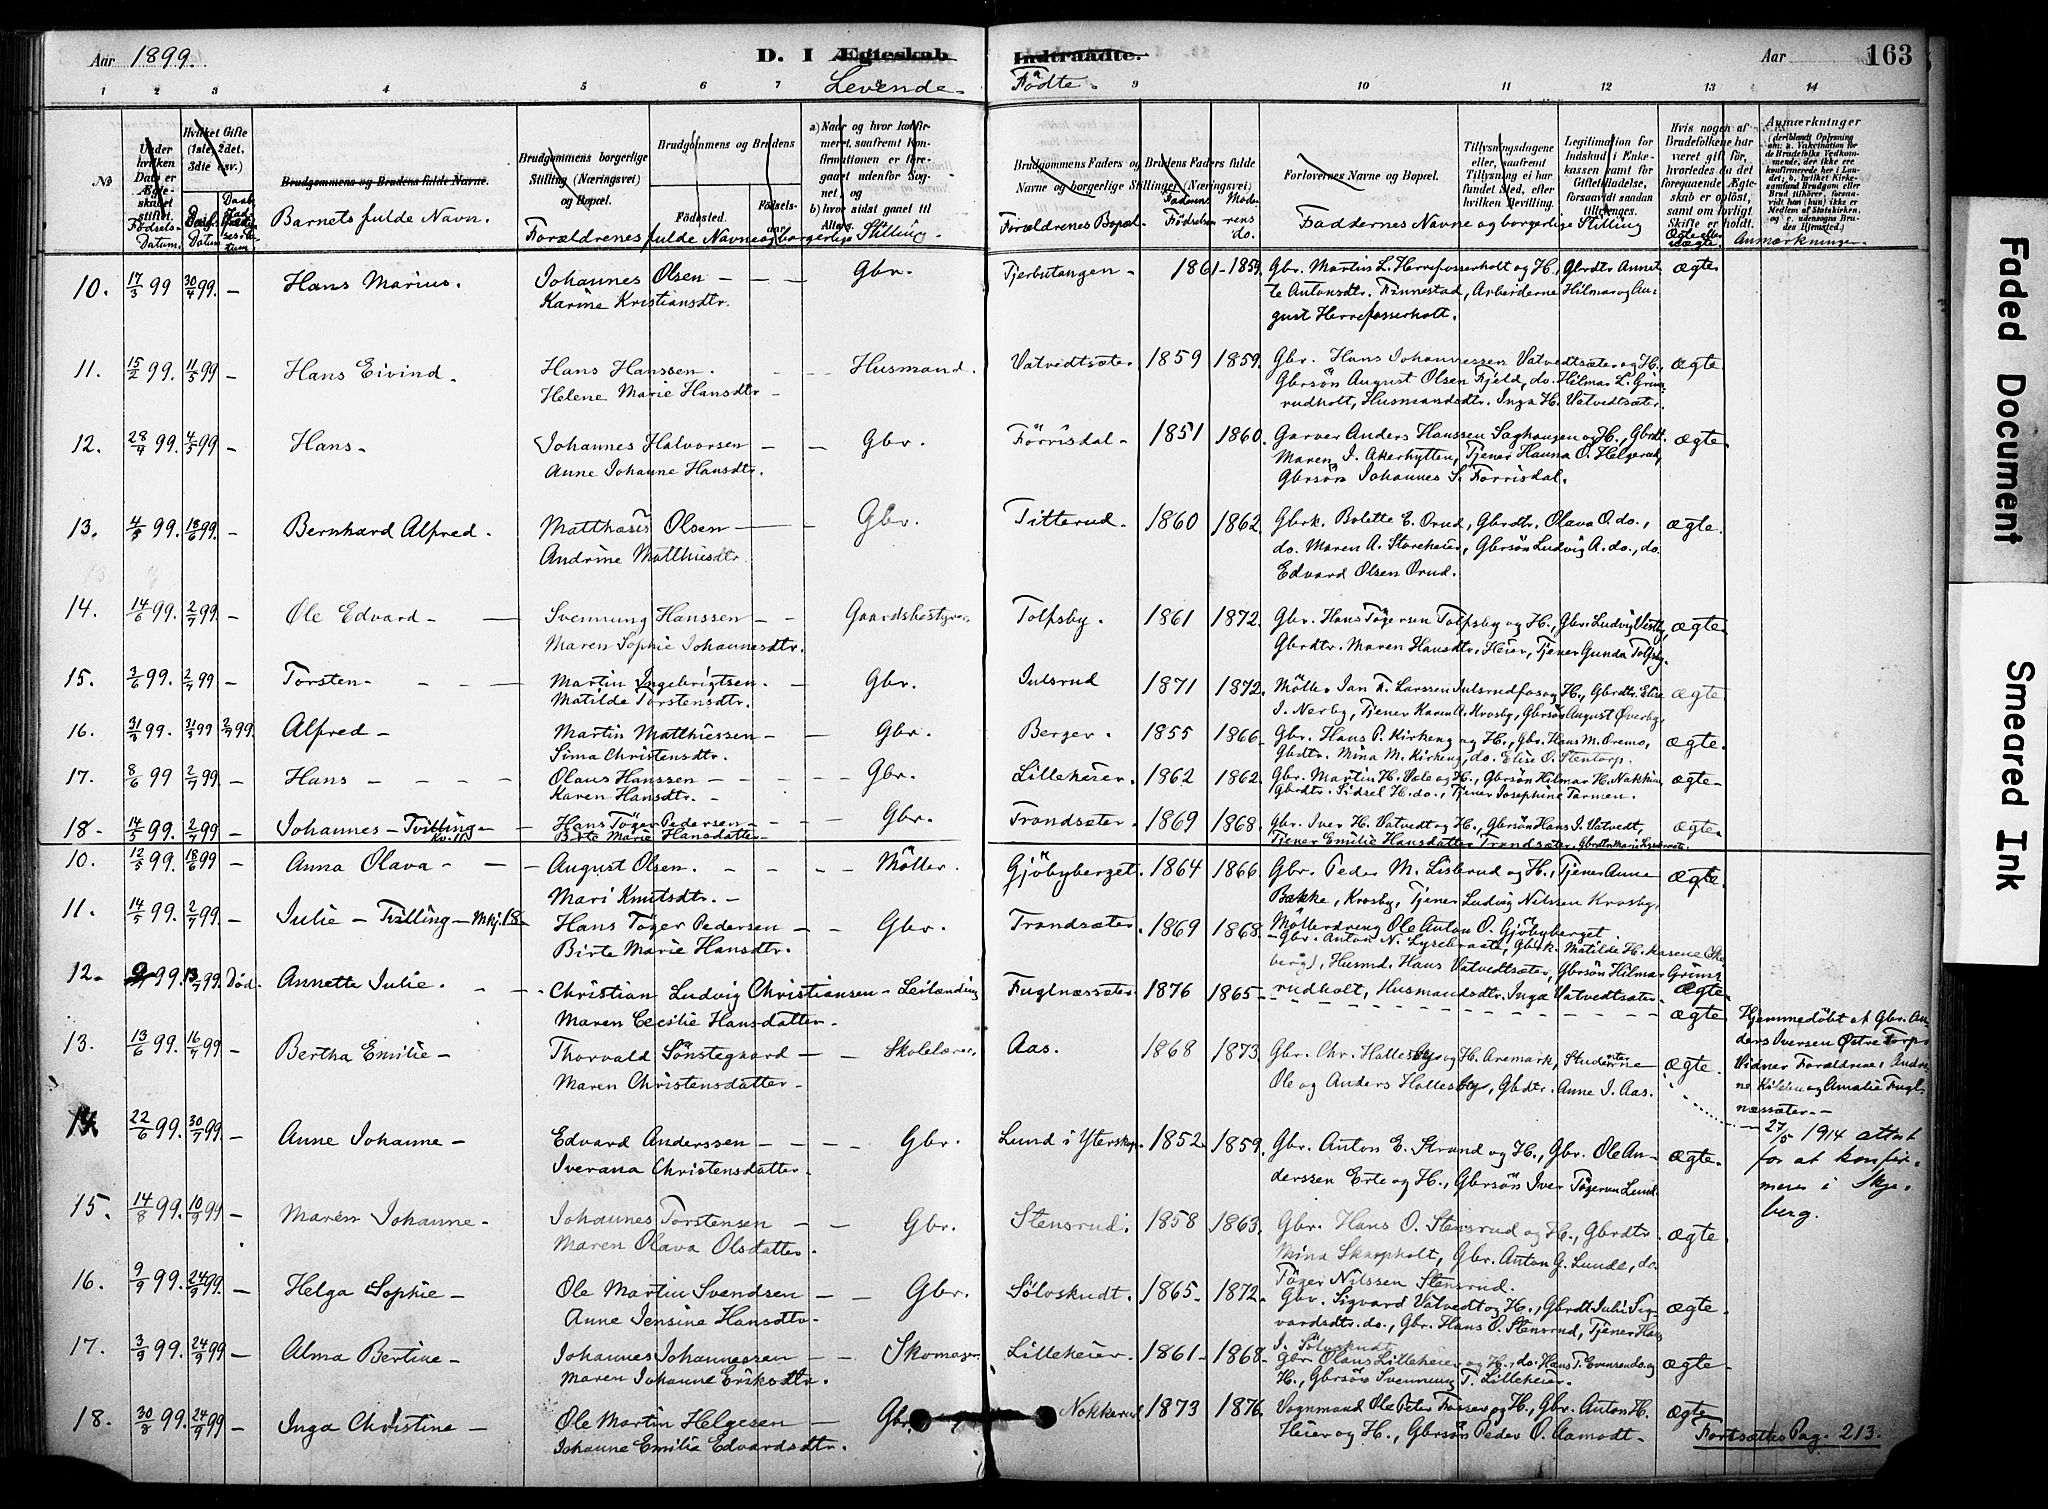 Aar 1899. D. I Ægteskab Indtraadte. Aar 163
Levende Fødte.
1 2 3 4 5 6 7 8 9 10 11 12 13 14
No Under hvilken Dato er Ægteskabet stiftet. Hvilket Gifte (1ste, 2det, 3die osv.) Brudgommens og Brudens fulde Navne. Brudgommens borgerlige Stilling (Næringsvei) og Bopæl. Brudgommens og Brudens Fødested. Fødselsaar. a) Naar og hvor konfirmeret, saafremt Konfirmationen er foregaaet udenfor Sognet og b) hvor sidst gaaet til Alters.
Brudgommens Faders og Brudens Faders fulde Navne og borgerlige Stillinger (Næringsvei) Forlovernes Navne og Bopæl. Tillysningsdagene eller, saafremt Tillysning ei har fundet Sted, efter hvilken Bevilling. Legitimation for Indskud i Enkekassen samt for Giftetilladelse, forsaavidt saadan tiltrenges. Hvis nogen af Brudefolkene har været gift før, hvorledes da det foregaaende Ægteskab er opløst, samt om lovligt Skifte er holdt. Anmærkninger (deriblandt Oplysning om: a. Vaccination for de Brudefolks Vedkommende, der ikke ere konfirmerede her i Landet; b. hvilket Kirkesamfund Brudgom eller Brud tilhører, forsaavidt han (hun) ikke er Medlem af Statskirken, og c. udensogns Brudes Hjemsted.)
Fødsels-Datum. Daabs-Datum Barnets fulde Navn. Forældrenes fulde Navne og borgerlige Stilling. Forældrenes Bopæl. Faderens Fødselsaar Moderens do. Faddernes Navne og borgerlige Stilling Ægte eller uægte. Anmærkninger.
10. 17/3 99 30/4 99. – Hans Marius. Johannes Olsen – – Gbr. Tjerbutangen – 1861 – 1859. Gbr. Martin L. Herrefosserholt og H., Gbrdtr. Annet- ægte
Karine Kristiansdtr. te Antonsdtr. Finnestad, Arbeiderne Hilmar og Au-
gust Herrefosserholt.
11. 15/2 99. 11/5 99 – Hans Eivind. Hans Hanssen. – – Husmand. Vatvedtsæter 1859 1859. Gbr. Hans Johannessen Vatvedtsæter og H., ægte
Helene Marie Hansdtr – Gbrsön August Olsen Fjeld, do. Hilmar L. Grims-
rudholt, Husmandsdtr. Inga H. Vatvedtsæter.
12. 28/4 99. 4/5 99 – Hans – Johannes Halvorsen – – Gbr. Förrisdal – 1851 1860. Garver Anders Hanssen Saghaugen og H., Gbrdt. ægte
Anne Johanne Hansdtr. Maren J. Akerhytten, Tjener Hanna O. Helgerud,
Gbrsön Johannes S. Förrisdal.
13. 4/5 99. 18/6 99. – Bernhard Alfred. Matthæus Olsen – – Gbr. Titterud. 1860 1862. Gbrk. Bolette E. Orud, Gbrdtr. Olava O. do., ægte.
Andrine Matthiasdtr. do. Maren A. Storeheier, Gbrsön Ludvig A. do., do.
Edvard Olsen Orud.
14. 14/6 99. 2/7 99. – Ole Edvard – – Svennung Hanssen – – Gaardsbestyrer. Tolfsby. 1861 1872. Gbr. Hans Tögersen Tolfsby og H., Gbr. Ludvig Vestby, ægte
Maren Sophie Johannesdtr. Gbrdtr. Maren Hansdtr. Heier, Tjener Gunda Tolfsby.
15. 3/6 99. 2/7 99 – Torsten – – – – Martin Ingebrigtsen. – Gbr. Julsrud 1871 1872. Mölle Jan F. Larssen Julsrudfos og H., Gbrdtr. Elise ægte
Matilde Torstensdtr. J. Nerby, Tjener Karen A. Krosby, Gbrsön August Överby.
16. 31/3 99. 31/3 99 2/7 99. Alfred – Martin Matthiessen – – Gbr. Berger – 1855 1866. Gbr. Hans P. Kirkeng og H., Gbr. Hans M. Oremo, ægte.
Sina Christensdtr. Gbdtr. Mina M. Kirkeng, do. Elise O. Stentorp.
17. 8/6 99 2/7 99. – Hans – – – – Olaus Hanssen – – Gbr. Lilleheier. 1862 1862. Gbr. Martin H. Vole og H., Gbrsön Hilmar H. Nakkim, ægte –
Karen Hansdtr. – Gbrdtr. Sidsel H. do., Tjener Josephine Tarmen.
18 – 14/5 99. 2/7 99 – Johannes – Tvilling – – Hans Töger Pedersen – – Gbr. Trandsæter. 1869 1868. Gbr. Iver H. Vatvedt og H., Gbrsön Hans J. Vatvedt, ægte.
Kv. 11 Birte Marie Hansdatter – Tjener Emilie Hansdatter Trandsæter, Gbrdtr. Marie
10. 12/5 99. 18/6 99 – Anna Olava – – – August Olsen. – – – – Möller Gjöbyberget. 1864 1866. Gbr. Peder M. Lislerud og H., Tjener Anne ægte
Mari Knutsdtr. – Bakke, Krosby, Tjener Ludvig Nilsen Krosby,
11. 14/5 99. 2/7 99. – Julie – Tvilling – Mkj. 18 – Hans Töger Pedersen – – Gbr. Trandsæter. 1869 1868. Möllerdreng Ole Anton O. Gjöbyberget.
Birte Marie Hansdtr. – Gbr. Anton N. Lysebraate, Gbrk. Matilde H.
12. 99. 13/7 99. Död. Annette Julie. – – – Christian Ludvig Christiansen – Leilænding Fuglnæssæter. 1876 1865 – berg), Husmd. Hans Vatvedtsæter, Gbrsön Hilmar Grims-
Maren Cecilie Hansdatter – rudholt, Husmandsdtr. Inga Vatvedtsæter. ægte.
ægte. Hjemmedöbt af Gbr. An-
13. 13/6 99. 16/7 99 – Bertha Emilie – Thorvald Sönstegaard – – Skolelærer. Aas. 1868 1873. Gbr. Chr. Holleby og H. Aremark, Studenterne ægte. ders Iversen Östre Torp.
Maren Christensdatter – Ole og Anders Holleby, Gbdtr. Anne J. Aas. Vidner Forældrene, Andri-
ne Kilebu og Amalie Fugl-
næssæter. –
14. 22/6 99. 30/7 99 – Anne Johanne – Edvard Anderssen – – – Gbr. Lund i Yterskog. 1852 1859. Gbr. Anton E. Strand og H., Gbr. Ole An- ægte. 27/5 1914 attest
Iverana Christensdatter. derssen Erte og H., Gbrsön Iver Tögersen Lund. for at konfir-
meres i Skje-
15. 14/8 99. 10/9 99 – Maren Johanne – Johannes Torstensen – – Gbr. Stensrud. 1858 1863. Gbr. Hans O. Stensrud og H., Gbrdtr. ægte. berg.
Maren Olava Olsdatter. Mina Skarpholt, Gbr. Anton G. Lunde, do.
Töger Nilssen Stensrud.
16. 9/9 99. 24/9 99. – Helga Sophie – Ole Martin Svendsen – – Gbr. Sölvskudt. 1865 – 1872. Gbr. Sigvard Vatvedt og H., Gbrdt. Juli Sig- ægte –
Anne Jensine Hansdtr. vardsdtr. do., Gbr. Hans O. Stensrud, Tjener Hans
J. Sölvskudt.
17. 3/9 99. 24/9 99 – Alma Bertine – Johannes Johannessen – – Skomager. Lilleheier. 1861 – 1868. Gbr. Olaus Lilleheier og H., do. Hans T. Evensen do. og ægte –
Maren Johanne Eriksdtr. H., Gbrsön Svennung T. Lilleheier.
18. 30/8 99. 24/9 99 – Inga Christine – Ole Martin Helgesen – Gbr. Nokkerud 1873 1876. Vognmand Ole Peter Fosser og H., Gbr. Anton H. ægte –
Johanne Emilia Edvardsdtr. Heier og H., Gbrsön Peder O. Aamodt – Fortsættes Pag. 213.
Faded Document
Smeared Ink